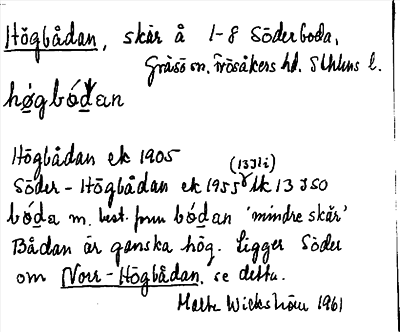 Högbådan, skär å 1-8 Söderboda,
Gräsö sn. Frösåkers hd. Sthlms l.
hø̱gbó̱dan
Högbådan ek 1905
(13 I 2i)
Söder-Högbådan ek 1955 lk 13 I SO
bó̱da m. best. form bó̱dan 'mindre skär'
Bådan är ganska hög. Ligger söder
om Norr-Högbådan, se detta.
Malte Wickström 1961